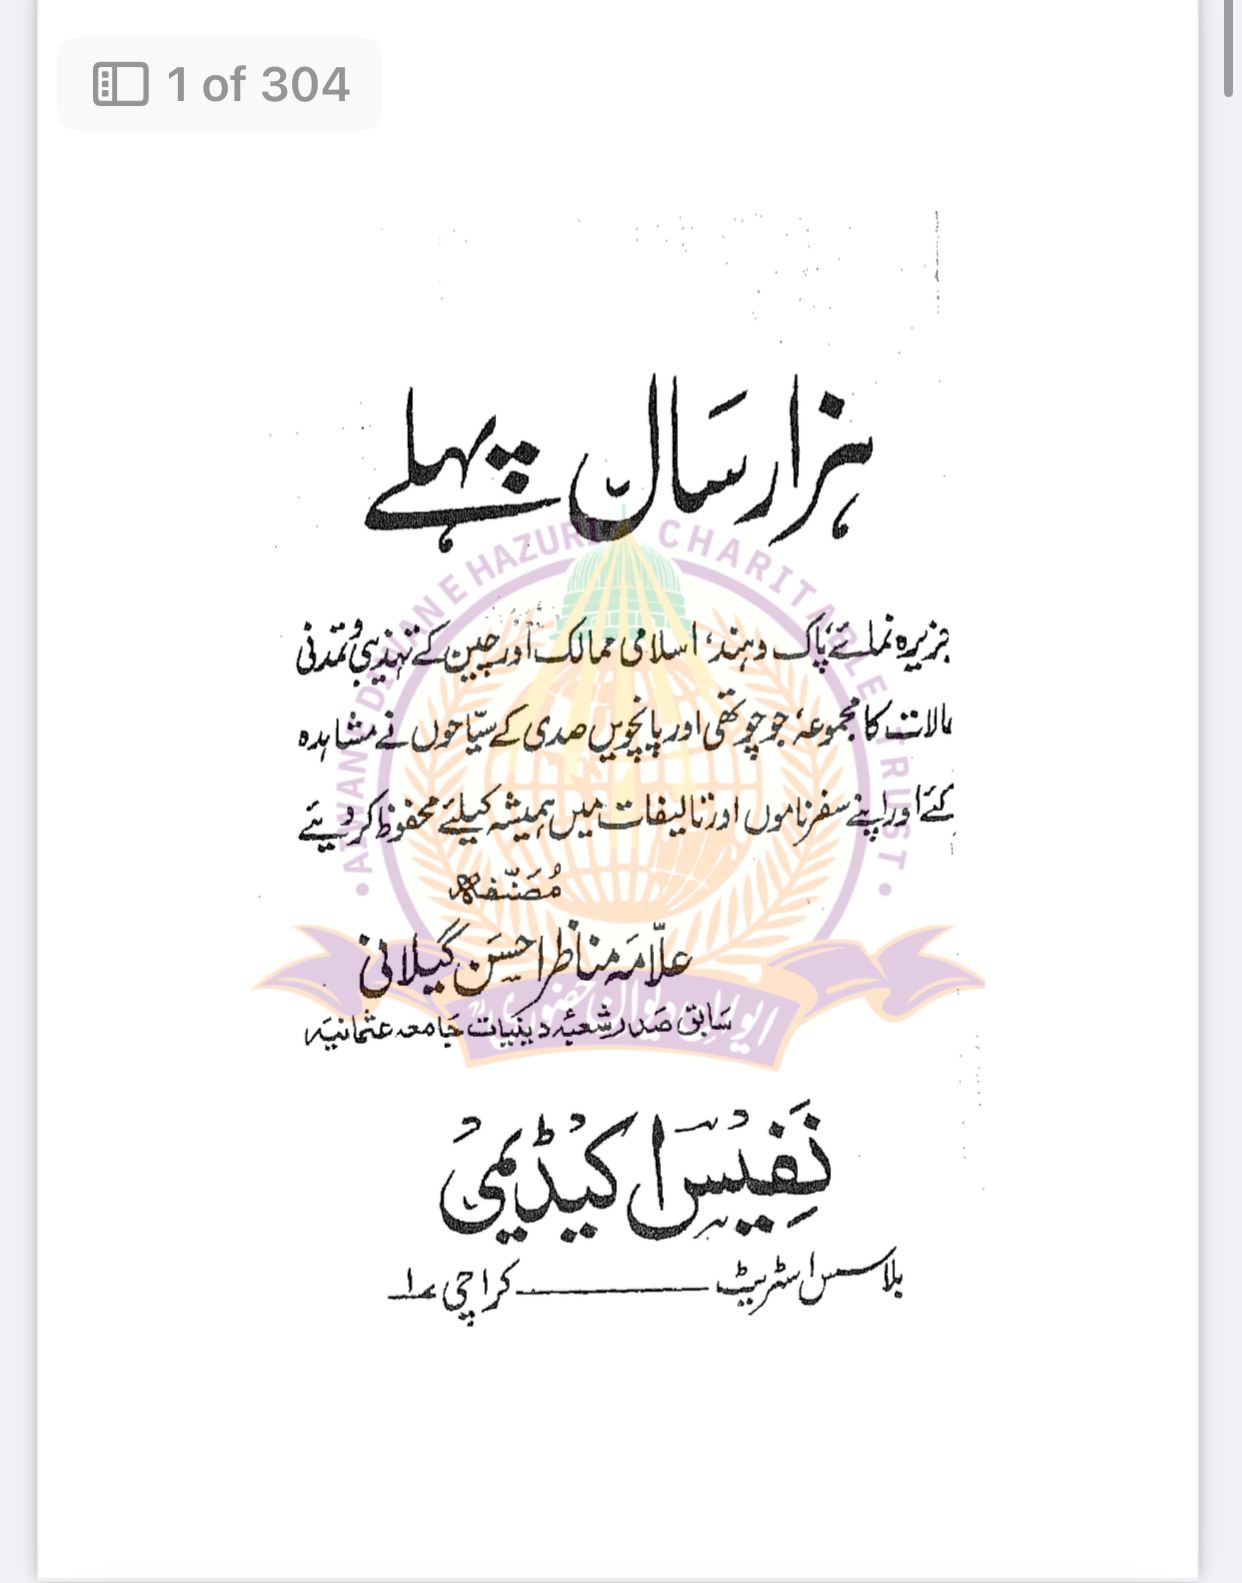 1 of 304
ہزار سال پہلے
جزیرہ نمائے پاک و ہند، اسلامی ممالک اور چین کے تہذیبی و تمدنی
حالات کا مجموعہ، جو چوتھی اور پانچویں صدی کے سیّاحوں نے مشاہدہ
کئے اور اپنے سفرناموں اور تالیفات میں ہمیشہ کیلئے محفوظ کر دیئے
مُصَنّفہ
علّامَہ مناظر احسَن گیلانی
سَابق صَدر شعبۂ دینیَات جَامعہ عثمانیَہ
نَفِیس اکیڈیمی
بلاسس اسٹریٹ ـــــــ کراچی ۱
AIWANE DIWANE HAZURI CHARITABLE TRUST
ایوانِ دیوانِ حضوری